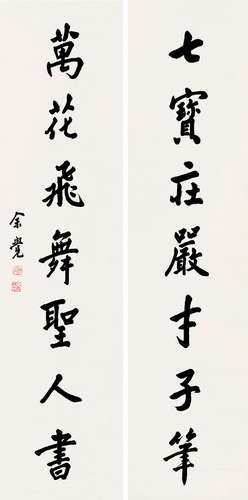 七寶莊嚴才子筆
萬花飛舞聖人書
余覺